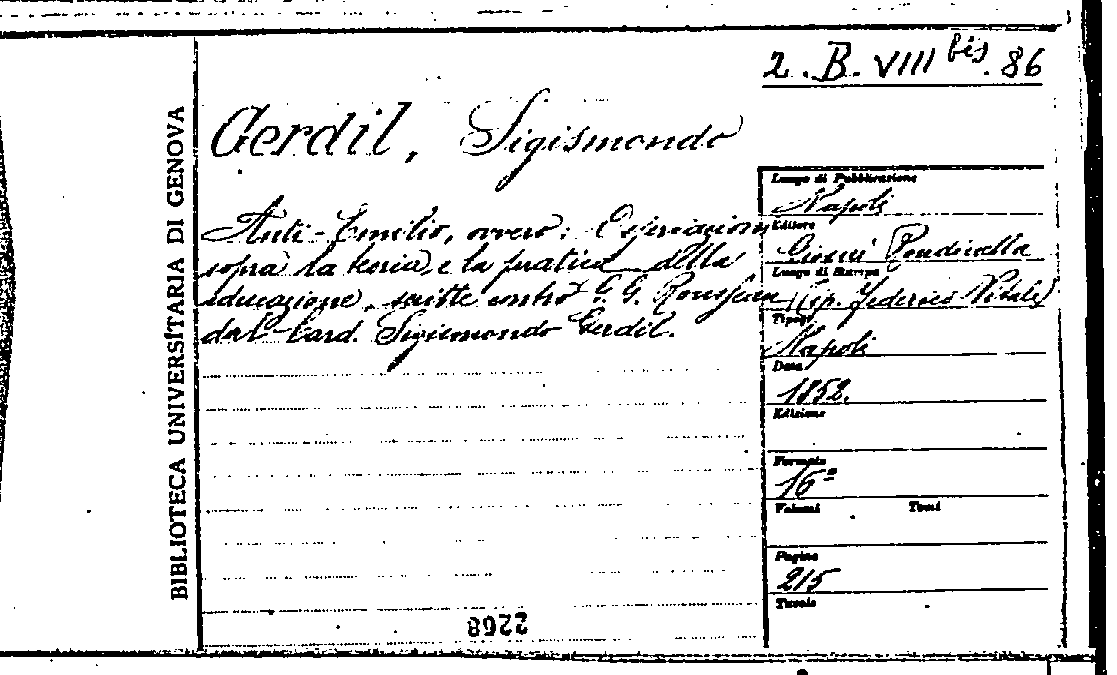 2. B. VIII bis. 86
BIBLIOTECA UNIVERSITARIA DI GENOVA
Gerdil, Sigismondo
Anti-Emilio, ovvero: Osservazioni
sopra la teoria, e la pratica della
educazione, scritte contro G. G. Rousseau
dal Card. Sigismondo Gerdil.
Luogo di Pubblicazione
Napoli
Editore
Giosuè Rondinella
Luogo di Stampa
(Tip. Federico Vitale)
Tipogr.
Napoli
Data
1852.
Edizione
Formato
16°
Volumi Tomi
Pagine
215
Tavole
2268